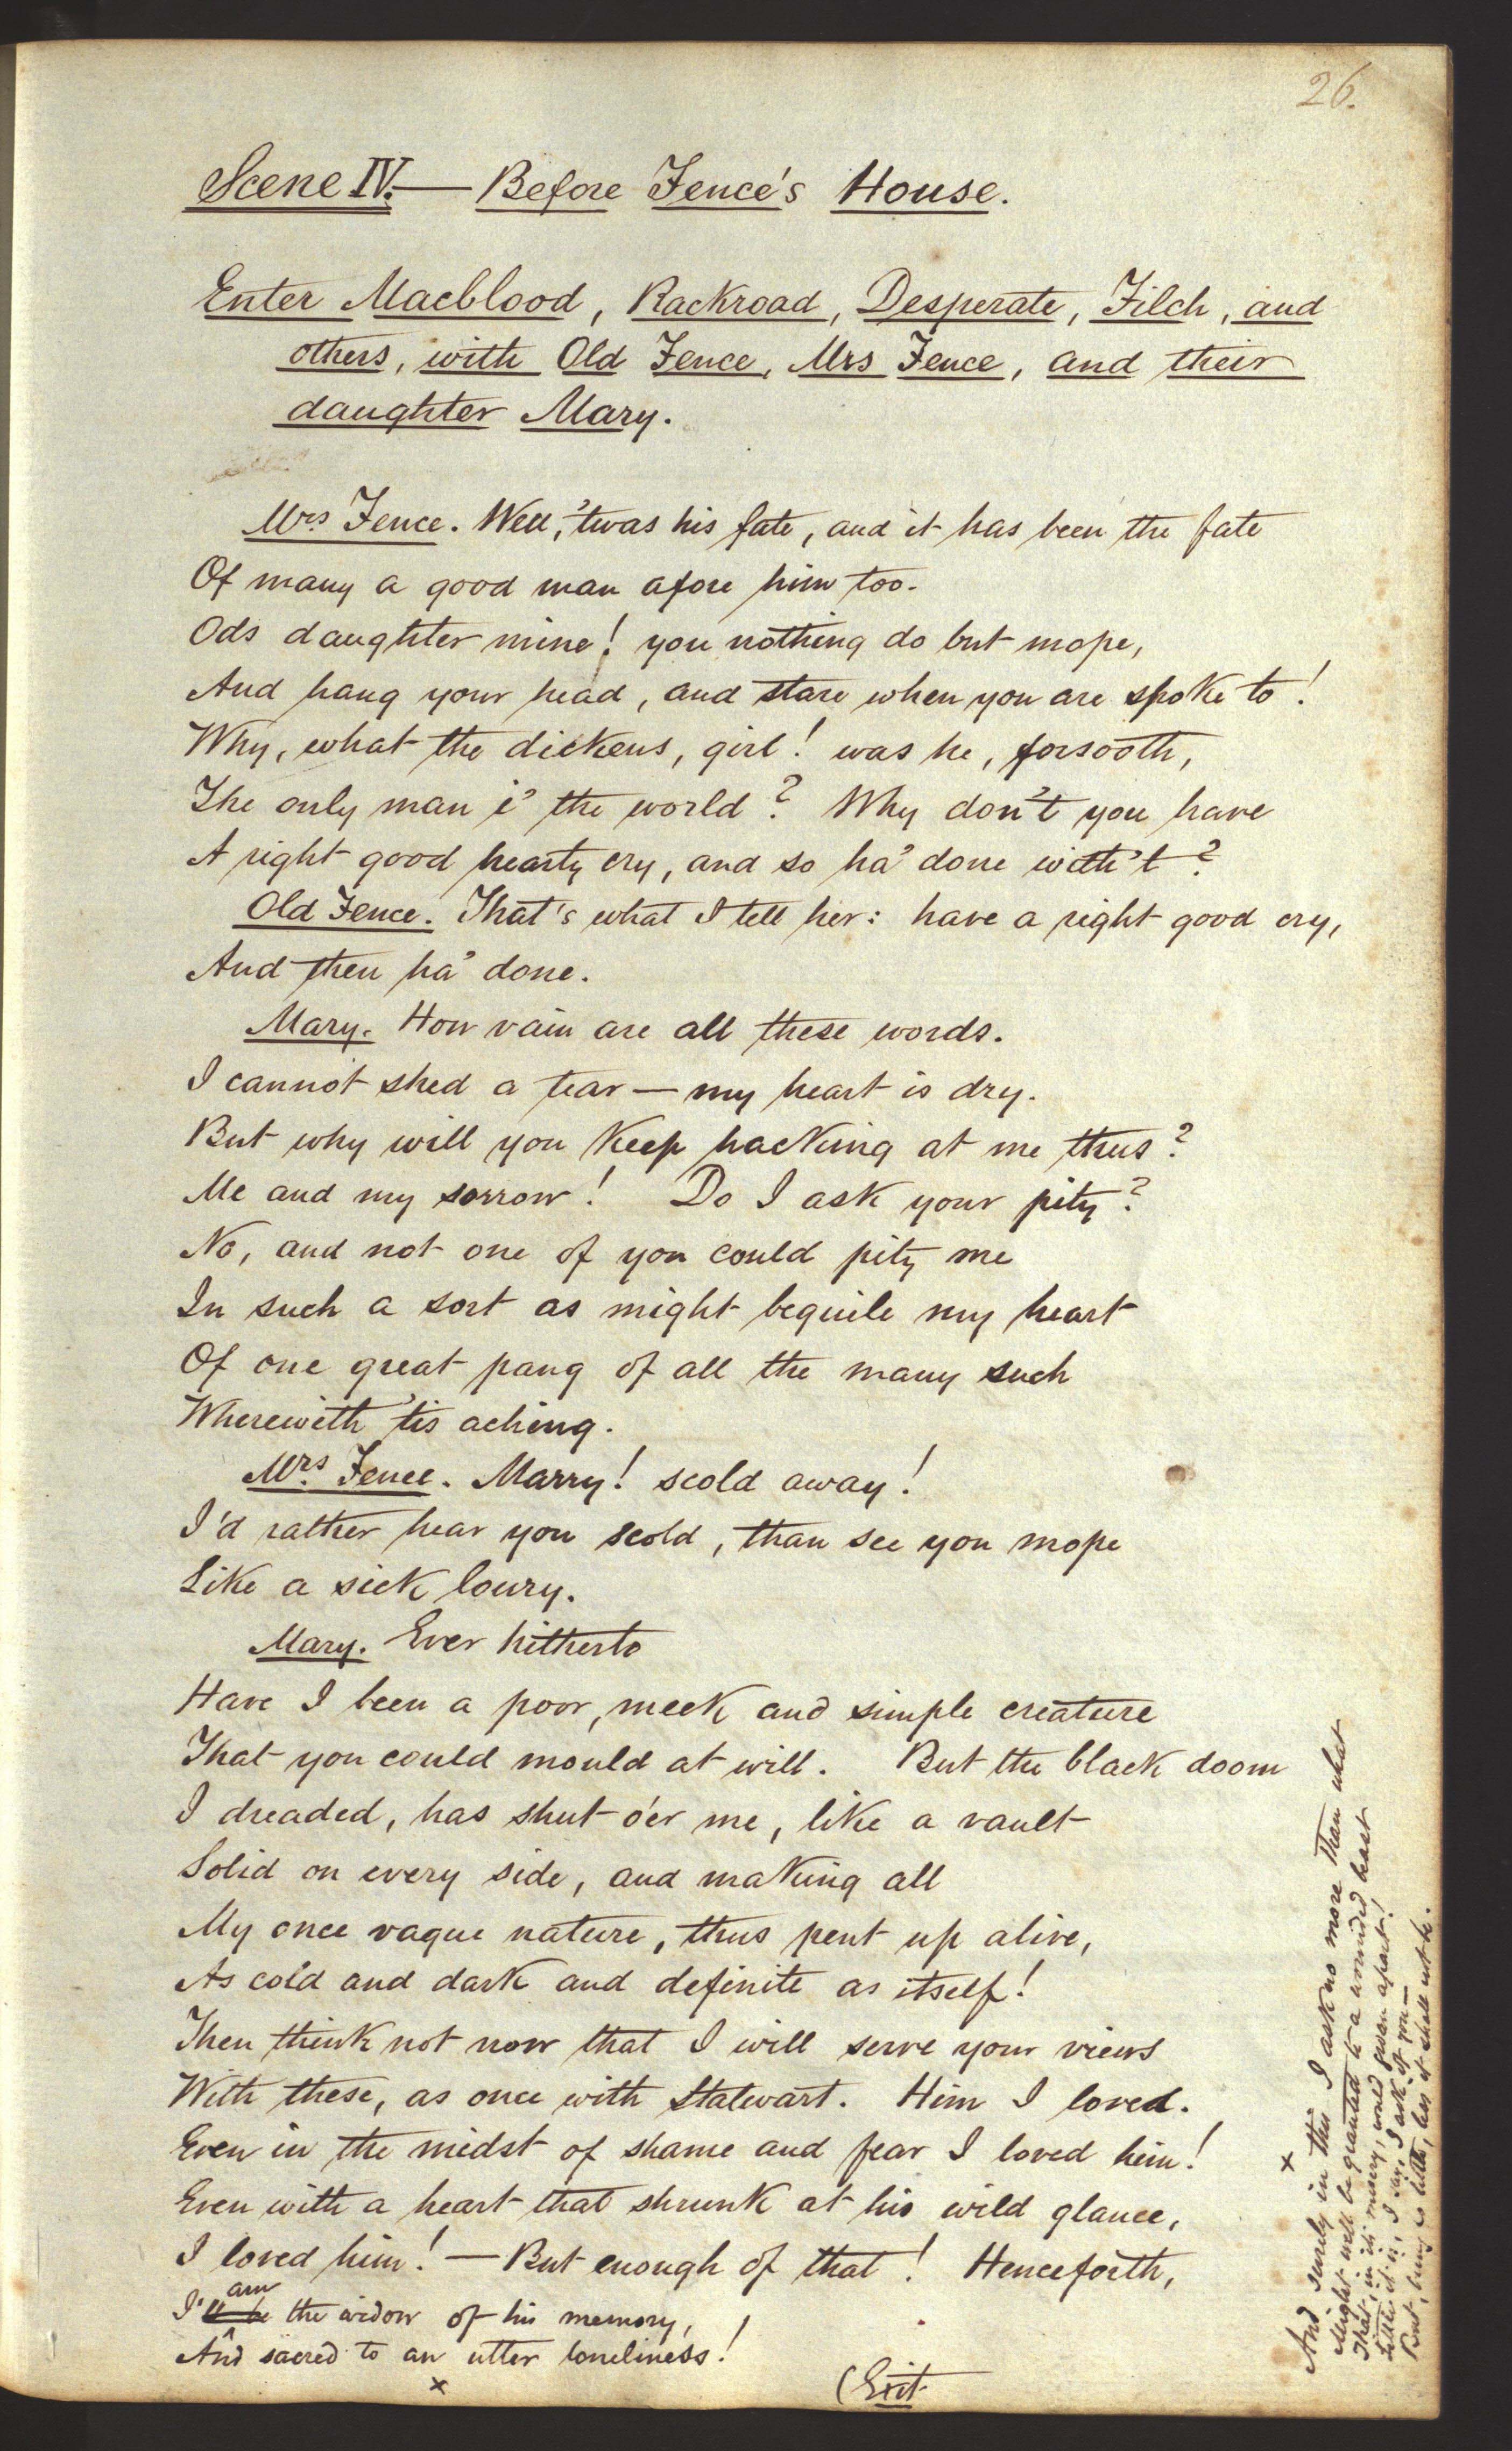 26.
Scene IV.— Before Fence's House.
Enter Macblood, Rackroad, Desperate, Filch, and
others, with Old Fence, Mrs Fence, and their
daughter Mary.
Mrs Fence. Well, 'twas his fate, and it has been the fate
Of many a good man afore him too.
Ods daughter mine! you nothing do but mope,
And hang your head, and stare when you are spoke to!
Why, what the dickens, girl! was he, forsooth,
The only man i' the world? Why don't you have
A right good hearty cry, and so ha' done with 't?
Old Fence. That's what I tell her: have a right good cry,
And then ha' done.
Mary. How vain are all these words.
I cannot shed a tear — my heart is dry.
But why will you keep hacking at me thus?
Me and my sorrow! Do I ask your pity?
No, and not one of you could pity me
In such a sort as might beguile my heart
Of one great pang of all the many such
Wherewith 'tis aching.
Mrs Fence. Marry! scold away!
I'd rather hear you scold, than see you mope
Like a sick lowry.
Mary. Ever hitherto
Have I been a poor, meek and simple creature
That you could mould at will. But the black doom
I dreaded, has shut o'er me, like a vault
Solid on every side, and making all
My once vague nature, thus pent up alive,
As cold and dark and definite as itself!
Then think not now that I will serve your views
With these, as once with Stalwart. Him I loved.
Even in the midst of shame and fear I loved him!
Even with a heart that shrunk at his wild glance,
I loved him! — But enough of that! Henceforth,
am
I'll be the widow of his memory,
And sacred to an utter loneliness!
x
(Exit
x
And surely in this I ask no more than what
Might well be granted to a wounded heart
That, in its misery, would groan apart!
Little it is, I say, I ask of you —
But, being so little, less it shall not be.